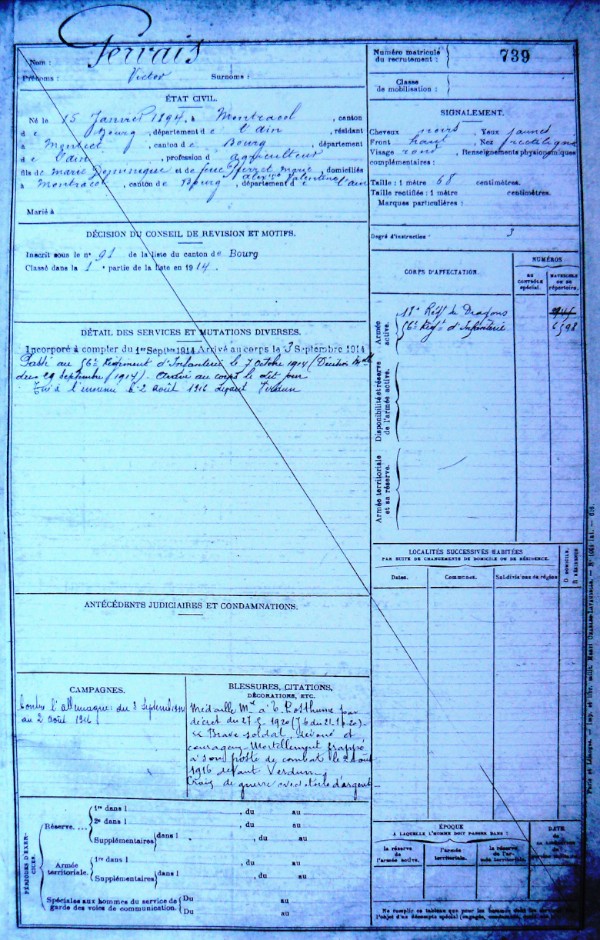 Nom : Gervais
Prénoms : Victor Surnoms :
Numéro matricule
du recrutement :
739
Classe
de mobilisation :
ÉTAT CIVIL.
Né le 15 Janvier 1894, à Montracol, canton
de Bourg, département de l'ain, résidant
à Montracol, canton de Bourg, département
de l'ain, profession d agriculteur
fils de Marie Dominique et de feue Marie, domiciliés
à Montracol, canton de Bourg, département de l'ain
Marié à
SIGNALEMENT.
Cheveux noirs Yeux
Front haut Nez rectiligne
Visage rond, Renseignements physionomiques
complémentaires :
Taille : 1 mètre 68 centimètres.
Taille rectifiée : 1 mètre centimètres.
Marques particulières :
Degré d'instruction : 3
DÉCISION DU CONSEIL DE REVISION ET MOTIFS.
Inscrit sous le n° 91 de la liste du canton de Bourg
Classé dans la 1e partie de la liste en 1914.
CORPS D'AFFECTATION.
NUMÉROS
AU
CONTRÔLE
spécial.
MATRICULE
OU AU
répertoire.
Armée
active.
Régt de Dragons
56e Régt d'Infanterie 6598
Disponibilité et réserve
de l'armée active.
Armée territoriale
et sa réserve.
DÉTAIL DES SERVICES ET MUTATIONS DIVERSES.
Incorporé à compter du 1er Septre 1914 Arrivé au corps le 3 Septembre 1914
Passé au 56e Régiment d'Infanterie le 7 octobre 1914 (Décision Mlle
du 29 Septembre 1914). Arrivé au corps le dit jour
Tué à l'ennemi le 2 août 1916 devant Verdun
LOCALITÉS SUCCESSIVES HABITÉES
PAR SUITE DE CHANGEMENTS DE DOMICILE OU DE RÉSIDENCE.
Dates.
Communes.
Subdivisions de région
D DOMICILE.
R RÉSIDENCE
ANTÉCÉDENTS JUDICIAIRES ET CONDAMNATIONS.
CAMPAGNES.
Contre l'allemagne : du 3 Septembre 1914
au 2 août 1916
BLESSURES, CITATIONS,
DÉCORATIONS, ETC.
Médaille Mre à t. Posthume par
décret du 1920
"Brave soldat, dévoué et
courageux. Mortellement frappé
à son poste de combat le 2 août
1916 devant Verdun"
Croix de guerre avec étoile d'argent
PÉRIODES D'EXERCICES.
Réserve...
1re dans l , du au
2e dans l , du au
Supplémentaires dans l , du au
Armée
territoriale.
1re dans l , du au
Supplémentaires dans l , du au
Spéciales aux hommes du service de
garde des voies de communication.
Du au
Du au
ÉPOQUE
À LAQUELLE L'HOMME DOIT PASSER DANS :
la réserve
de
l'armée active.
l'armée
territoriale.
la réserve
de l'armée territoriale.
DATE
Ne remplir ce tableau que pour les hommes